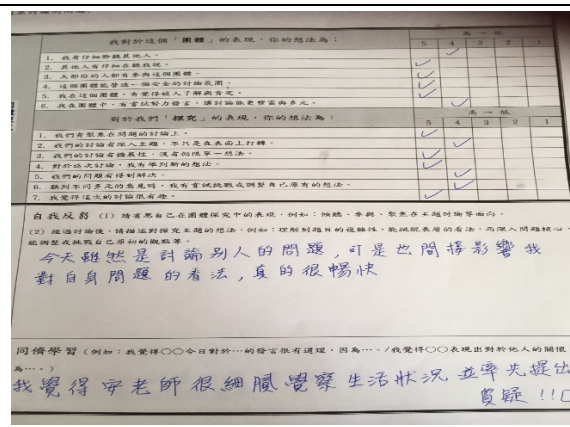 我對於這個「團體」的表現，你的想法為：
高→低
5 4 3 2 1
1. 我有仔細聆聽其他人。
2. 其他人有仔細在聽我說。
3. 大部份的人都有參與這個團體。
4. 這個團體能營造一個安全的討論氛圍。
5. 我在這個團體，有覺得被人了解與肯定。
6. 我在團體中，有嘗試努力發言，讓討論能更豐富與多元。
對於我們「探究」的表現，你的想法為：
高→低
5 4 3 2 1
1. 我們有聚焦在問題的討論上。
2. 我們的討論有深入主題，不只是在表面上打轉。
3. 我們的討論有擴展性，沒有侷限單一想法。
4. 對於這次討論，我有學到新的想法。
5. 我們的問題有得到解決。
6. 聽到不同多元的意見時，我有嘗試挑戰或調整自己原有的想法。
7. 我覺得這次的討論很有趣。
自我反芻（1）請省思自己在團體探究中的表現，例如：傾聽、參與、聚焦在主題討論等面向。
（2）經過討論後，請描述對探究主題的想法，例如：理解到題目的複雜性、能跳脫表層的看法，而深入問題核心、
能調整或挑戰自己原初的觀點等。
今天雖然是討論別人的問題，可是也間接影響我
對自身問題的看法，真的很暢快
同儕學習（例如：我覺得○○今日對於…的發言很有道理，因為…。/我覺得○○表現出對於他人的關懷
為…。）
我覺得安老師很細膩覺察生活狀況並率先提出
質疑!!